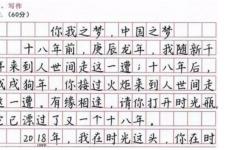 、写作
(60分)
你我之梦，中国之梦
十八年前，庚辰龙年，我随新千
年来到人世间走这一遭；十八年后，
戊戌狗年，你接过火炬来到人世间走
这一遭，有缘相逢，请你打开时光瓶
它已漂过了又一个十八年。
2018年，我在时光这头，你在时